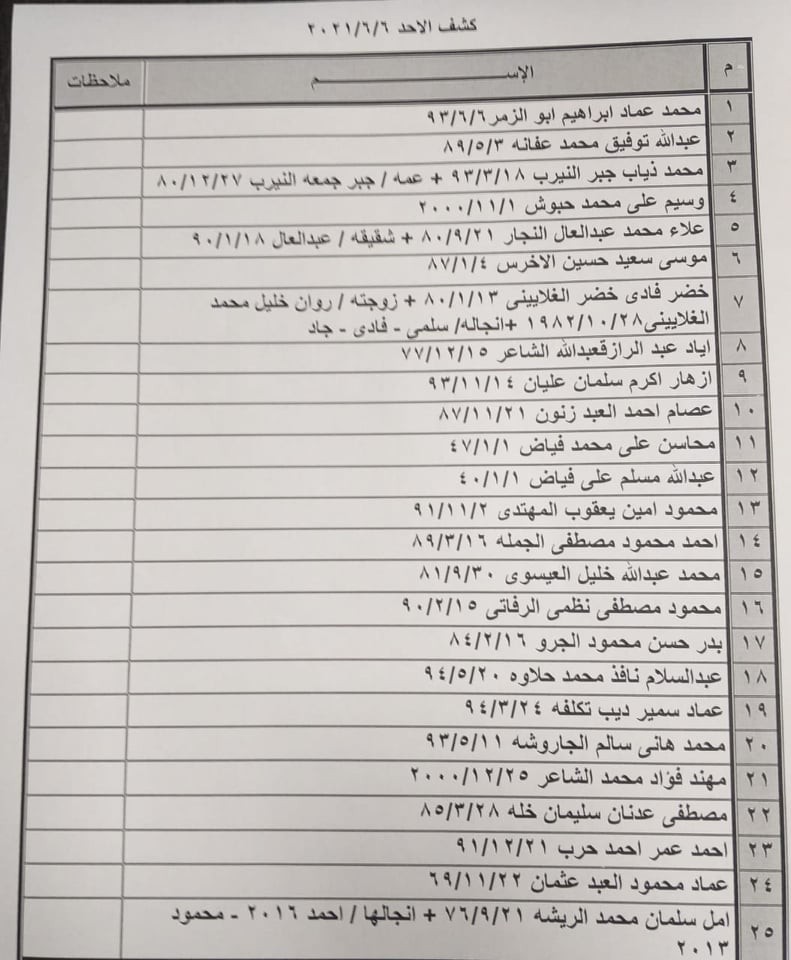 كشف الاحد ٢٠٢١/٦/٦
م الإســـــــــــــــــــــم ملاحظات
١ محمد عماد ابراهيم ابو الزمر ٩٣/٦/٦
٢ عبدالله توفيق محمد عفانه ٨٩/٥/٣
٣ محمد ذياب جبر النيرب ٩٣/٣/١٨ + عمه / جبر جمعه النيرب ٨٠/١٢/٢٧
٤ وسيم على محمد حبوش ٢٠٠٠/١١/١
٥ علاء محمد عبدالعال النجار ٨٠/٩/٢١ + شقيقه / عبدالعال ٩٠/١/١٨
٦ موسى سعيد حسين الاخرس ٨٧/١/٤
٧ خضر فادى خضر الغلايينى ٨٠/١/١٣ + زوجته / روان خليل محمد
الغلايينى ١٩٨٢/١٠/٢٨ +انجاله/ سلمي - فادى - جاد
٨ اياد عبد الرازقعبدالله الشاعر ٧٧/١٢/١٥
٩ ازهار اكرم سلمان عليان ٩٣/١١/١٤
١٠ عصام احمد العبد زنون ٨٧/١١/٢١
١١ محاسن على محمد فياض ٤٧/١/١
١٢ عبدالله مسلم على فياض ٤٠/١/١
١٣ محمود امين يعقوب المهتدى ٩١/١١/٢
١٤ احمد محمود مصطفى الجمله ٨٩/٣/١٦
١٥ محمد عبدالله خليل العيسوى ٨١/٩/٣٠
١٦ محمود مصطفى نظمى الرفاتى ٩٠/٢/١٥
١٧ بدر حسن محمود الجرو ٨٤/٢/١٦
١٨ عبدالسلام نافذ محمد حلاوه ٩٤/٥/٢٠
١٩ عماد سمير ديب تكلفه ٩٤/٣/٢٤
٢٠ محمد هانى سالم الجاروشه ٩٣/٥/١١
٢١ مهند فؤاد محمد الشاعر ٢٠٠٠/١٢/٢٥
٢٢ مصطفى عدنان سليمان خله ٨٥/٣/٢٨
٢٣ احمد عمر احمد حرب ٩١/١٢/٢١
٢٤ عماد محمود العبد عثمان ٦٩/١١/٢٢
٢٥ امل سلمان محمد الريشه ٧٦/٩/٢١ + انجالها / احمد ٢٠١٦ - محمود
٢٠١٣